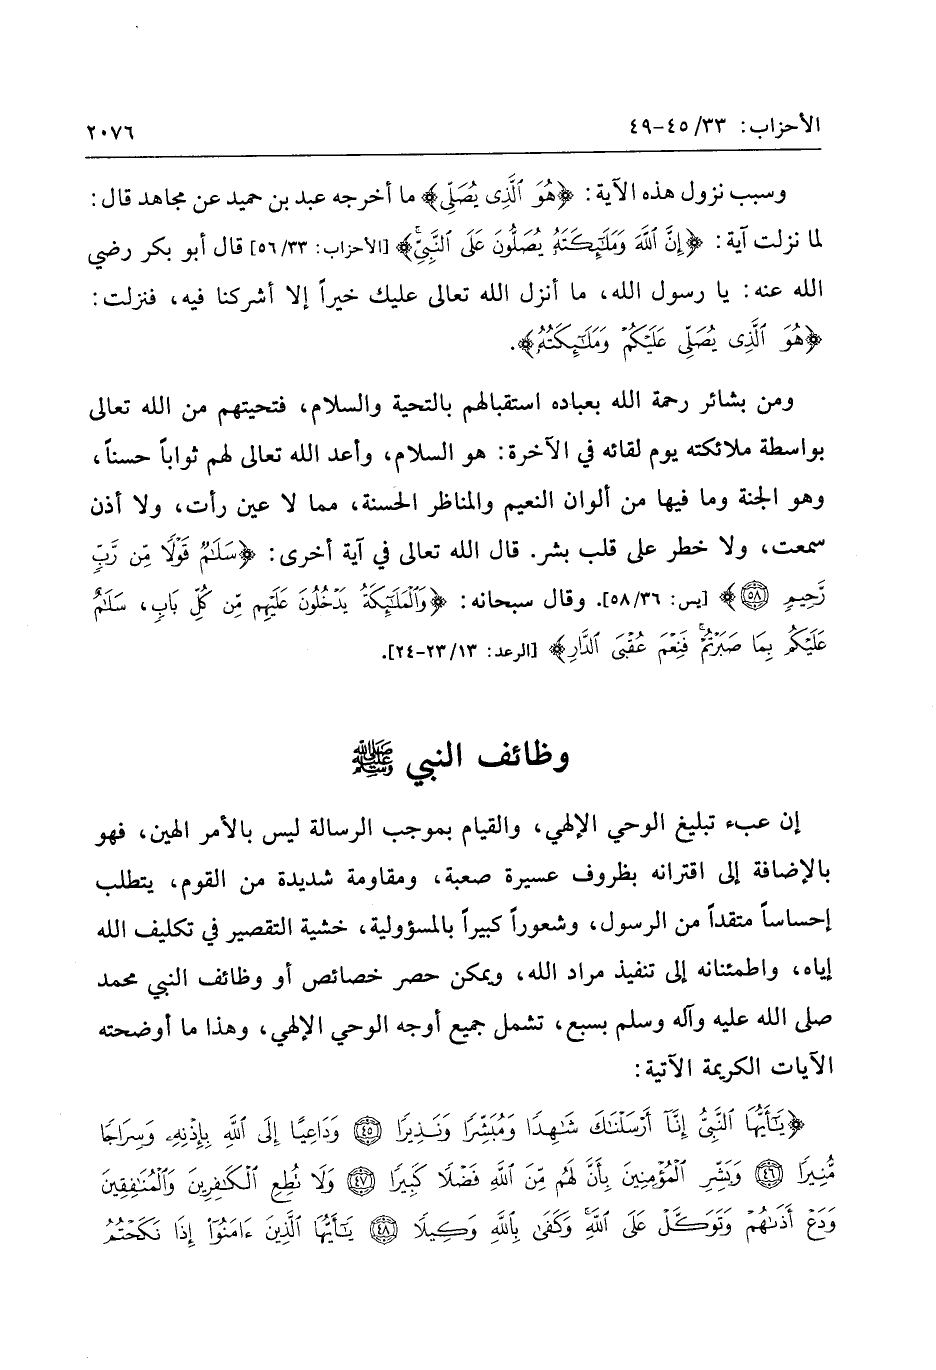 الأحزاب: ٣٣/ ٤٥-٤٩ ٢٠٧٦
وسبب نزول هذه الآية: ﴿هُوَ ٱلَّذِى يُصَلِّى﴾ ما أخرجه عبد بن حميد عن مجاهد قال:
لما نزلت آية: ﴿إِنَّ ٱللَّهَ وَمَلَٰٓئِكَتَهُۥ يُصَلُّونَ عَلَى ٱلنَّبِىِّۚ﴾ [الأحزاب: ٣٣/ ٥٦] قال أبو بكر رضي
الله عنه: يا رسول الله، ما أنزل الله تعالى عليك خيراً إلا أشركنا فيه، فنزلت:
﴿هُوَ ٱلَّذِى يُصَلِّى عَلَيْكُمْ وَمَلَٰٓئِكَتُهُۥ﴾.
ومن بشائر رحمة الله بعباده استقبالهم بالتحية والسلام، فتحيتهم من الله تعالى
بواسطة ملائكته يوم لقائه في الآخرة: هو السلام، وأعد الله تعالى لهم ثواباً حسناً،
وهو الجنة وما فيها من ألوان النعيم والمناظر الحسنة، مما لا عين رأت، ولا أذن
سمعت، ولا خطر على قلب بشر. قال الله تعالى في آية أخرى: ﴿سَلَٰمٌ قَوْلًا مِّن رَّبٍّ
رَّحِيمٍ ٥٨﴾ [يس: ٣٦/ ٥٨]. وقال سبحانه: ﴿وَٱلْمَلَٰٓئِكَةُ يَدْخُلُونَ عَلَيْهِم مِّن كُلِّ بَابٍ، سَلَٰمٌ
عَلَيْكُم بِمَا صَبَرْتُمْۚ فَنِعْمَ عُقْبَى ٱلدَّارِ﴾ [الرعد: ١٣/ ٢٣-٢٤].
وظائف النبي ﷺ
إن عبء تبليغ الوحي الإلهي، والقيام بموجب الرسالة ليس بالأمر الهين، فهو
بالإضافة إلى اقترانه بظروف عسيرة صعبة، ومقاومة شديدة من القوم، يتطلب
إحساساً متقداً من الرسول، وشعوراً كبيراً بالمسؤولية، خشية التقصير في تكليف الله
إياه، واطمئنانه إلى تنفيذ مراد الله، ويمكن حصر خصائص أو وظائف النبي محمد
صلى الله عليه وآله وسلم بسبع، تشمل جميع أوجه الوحي الإلهي، وهذا ما أوضحته
الآيات الكريمة الآتية:
﴿يَٰٓأَيُّهَا ٱلنَّبِىُّ إِنَّآ أَرْسَلْنَٰكَ شَٰهِدًا وَمُبَشِّرًا وَنَذِيرًا ٤٥ وَدَاعِيًا إِلَى ٱللَّهِ بِإِذْنِهِۦ وَسِرَاجًا
مُّنِيرًا ٤٦ وَبَشِّرِ ٱلْمُؤْمِنِينَ بِأَنَّ لَهُم مِّنَ ٱللَّهِ فَضْلًا كَبِيرًا ٤٧ وَلَا تُطِعِ ٱلْكَٰفِرِينَ وَٱلْمُنَٰفِقِينَ
وَدَعْ أَذَىٰهُمْ وَتَوَكَّلْ عَلَى ٱللَّهِۚ وَكَفَىٰ بِٱللَّهِ وَكِيلًا ٤٨ يَٰٓأَيُّهَا ٱلَّذِينَ ءَامَنُوٓاْ إِذَا نَكَحْتُمُ